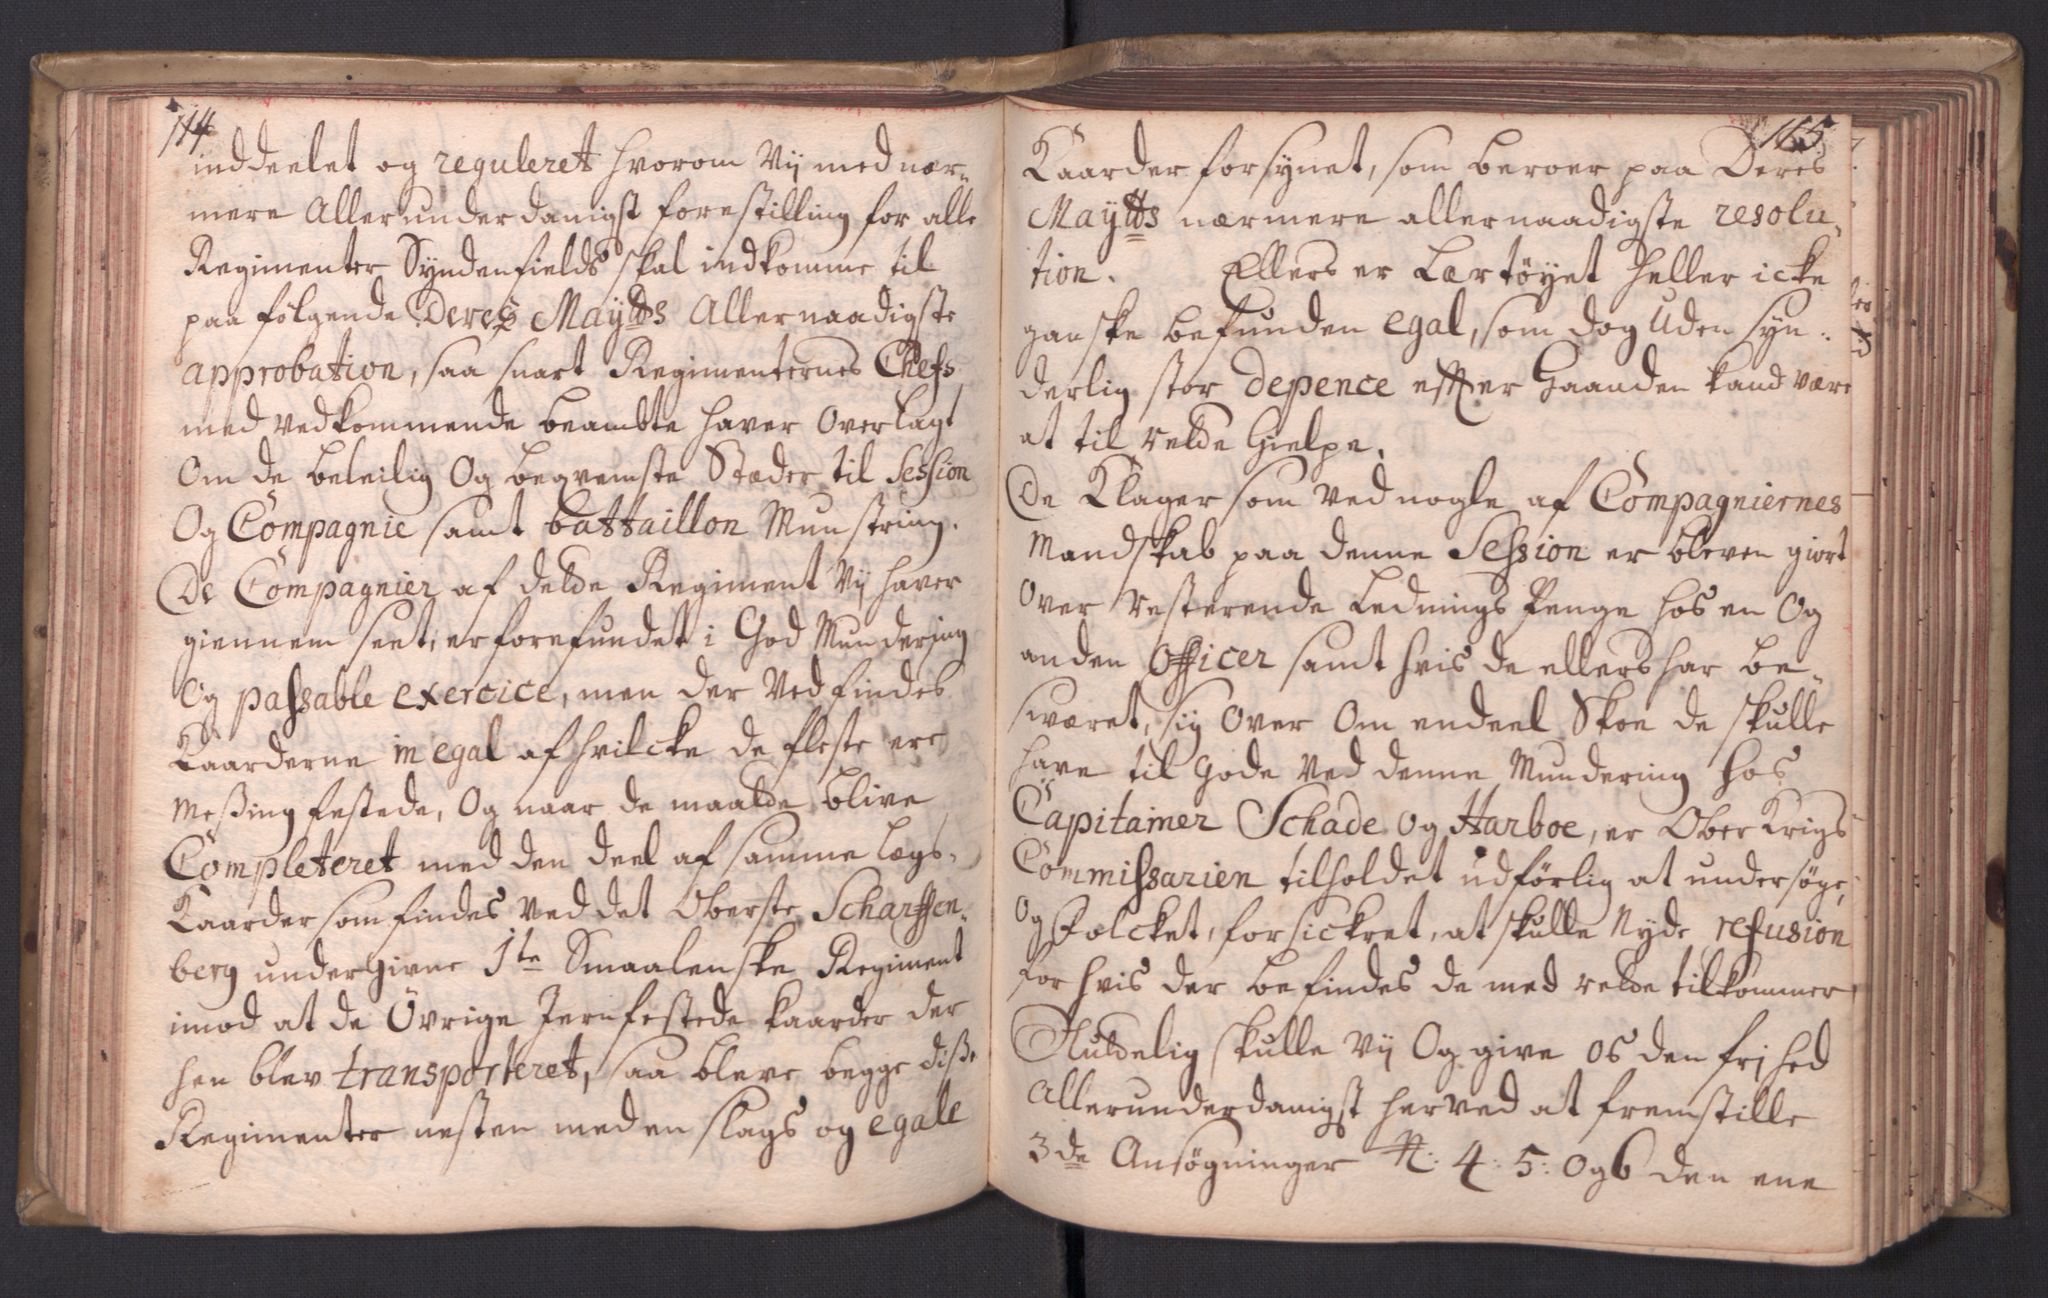 114
inddeelet og reguleret hvorom Vij med nær-
mere Allerunderdanigst forestilling for alle
Regimenter Syndenfields skal indkomme til
paa følgende Deres Maytts Allernaadigste
approbation, saa snart Regimenternes Chefs
med vedkommende beambte haver Overlagt
Om de beleilig Og beqvemste Stæder til Session
Og Compagnie samt battaillon Munstring.
De Compagnier af delde Regiment Vij haver
giennem seet, er forefundet i God Mundering
Og passable exercice, men der Ved findes
Kaarderne in egal af hvilcke de fleste ere
Messing festede, Og naar de maatte blive
Completeret med den deel af samme lags
Kaarder som findes Ved det Oberste Scharffen-
berg undergivne 1te Smaalenske Regiment
imod at de Övrige Jernfestede kaarder der
hen blev transporteret, saa bleve begge disse
Regimenter nesten med en slags og egale
165
Kaarder forsynet, som beroer paa Deres
Maytts nærmere allernaadigste resolu-
tion. Ellers er Lærtöyet heller icke
ganske befunden egal, som dog Uden syn-
derlig stor depence effter Haanden kand være
at til rette Hielpe.
De Klager som Ved nogle af Compagniernes
Mandskab paa denne Session er bleven giort
Over resterende Lednings Penge hos en Og
anden Officer samt hvis de ellers har be-
sværet sig Over Om endeel Skoe de skulle
have til Gode Ved denne Mundering hos
Capitainer Schade og Harboe, er Ober Krigs
Commissarien tilholdet udförlig at undersöge,
Og Folcket forsickret, at skulle Nyde refusion
for hvis der befindes de med rette tilkommer
Skuldelig skulle Vij Og give os den frihed
Allerunderdanigst herved at fremstille
3de Ansögninger N: 4: 5: Og 6 den ene